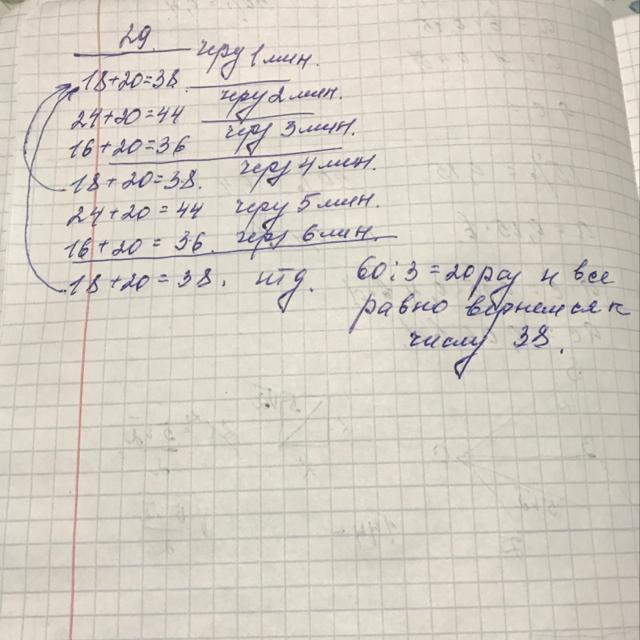 29.
18+20=38. черз 1 мин.
24+20=44 черз 2 мин.
16+20=36 черз 3 мин.
18+20=38. черз 4 мин.
24+20=44 черз 5 мин.
16+20=36. черз 6 мин.
18+20=38. итд. 60:3=20раз и все
равно вернемся к
числу 38.